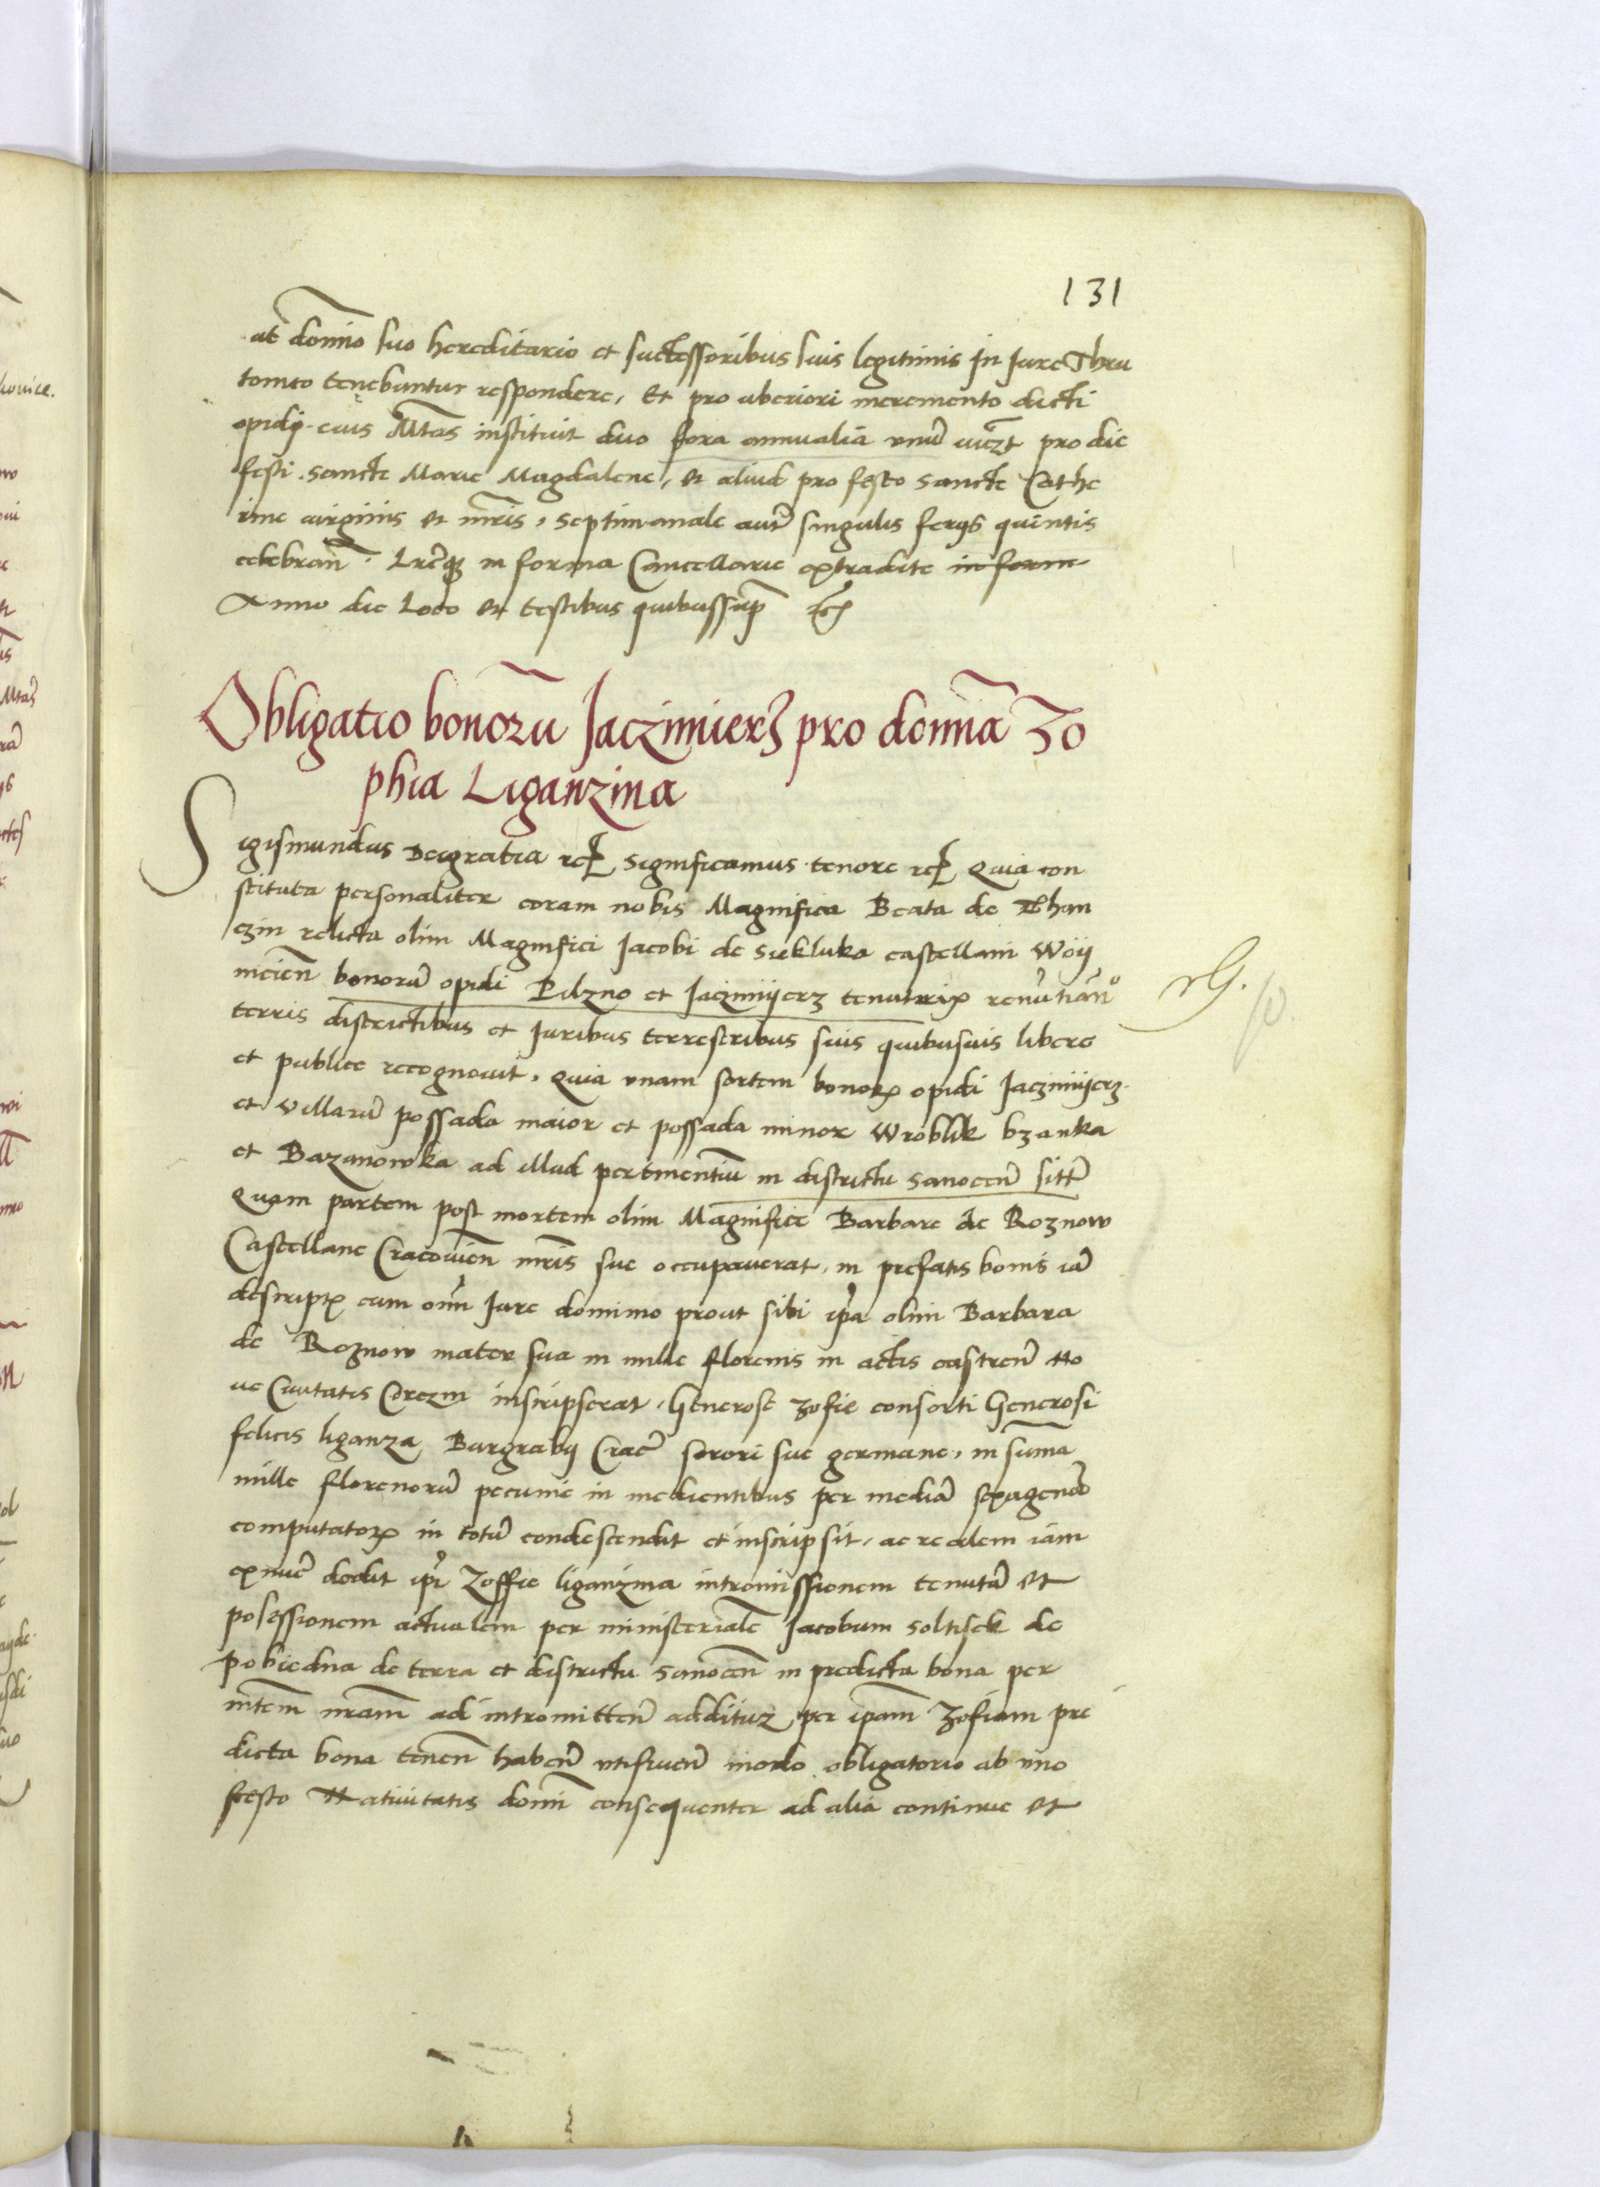 131
at domĩo suo hereditario et successoribus suis legitimis In Iure Theu
tonico tenebuntur respondere, Et pro uberiori incremento dicti
opidi eius Mtas instituit duo fora annualia unũ pro die
festi sancte Marie Magdalene, et aliud pro festo sancte Cathe
rine virginis et mr̃is, septimanale autẽ singulis ferijs quintis
celebran̄. Lr̃eqȝ in forma Cancellarie extradite in forme
Anno die Loco et testibus quibus supra ꝛc̃
Obligatio bonorũ Jaczimierz pro domina Zo
phia Liganzina
Sigismundus Deigratia ꝛc̃ Significamus tenore ꝛc̃ Quia con
stituta personaliter coram nobis Magnifica Beata de Than
czin relicta olim Magnifici Jacobi de Siekluka castellani Woy
nicien̄ bonorũ opidi Pilzno et Jaczmijerz tenutrix
terris districtibus et Iuribus terrestribus suis quibusuis libere
et publice recognouit, Quia unam sortem bonorꝝ opidi Jaczmijerz
et villarũ possada maior et possada minor Wroblik bzanka
et Bazanowka ad illud pertinentiũ in districtu Sanocen̄ sitt̃
Quam partem post mortem olim Magnifice Barbare de Roznow
Castellane Cracouien̄ mr̃is sue occupauerat, in prefatis bonis iã
descriptꝭ cum omni Iure dominio prout sibi ip̃a olim Barbara
de Roznow mater sua in mille florenis in actis castren̄ No
ue Ciuitatis Corczin inscripserat, Generose Zofie consorti Generosi
felicis liganza Burgrabij Crac̃ sorori sue germane, in sum̃a
mille florenorũ pecunie in medientibus per mediã sexagenã
computatorꝝ in totũ condescendit et inscripsit, ac realem iam
ex nũc dedit ip̃i Zoffie liganzina intromissionem tenutã et
possessionem actualem per ministerialẽ Jacobum soltisek de
pobiedna de terra et districtu Sanocen̄ in predicta bona per
m̃tem nr̃am ad intromitten̄ additũ per ip̃am Zofiam pre
dicta bona tenen̄ haben̄ utifruen̄ modo obligatorio ab uno
festo Natiuitatis domĩ consequenter ad alia continue et